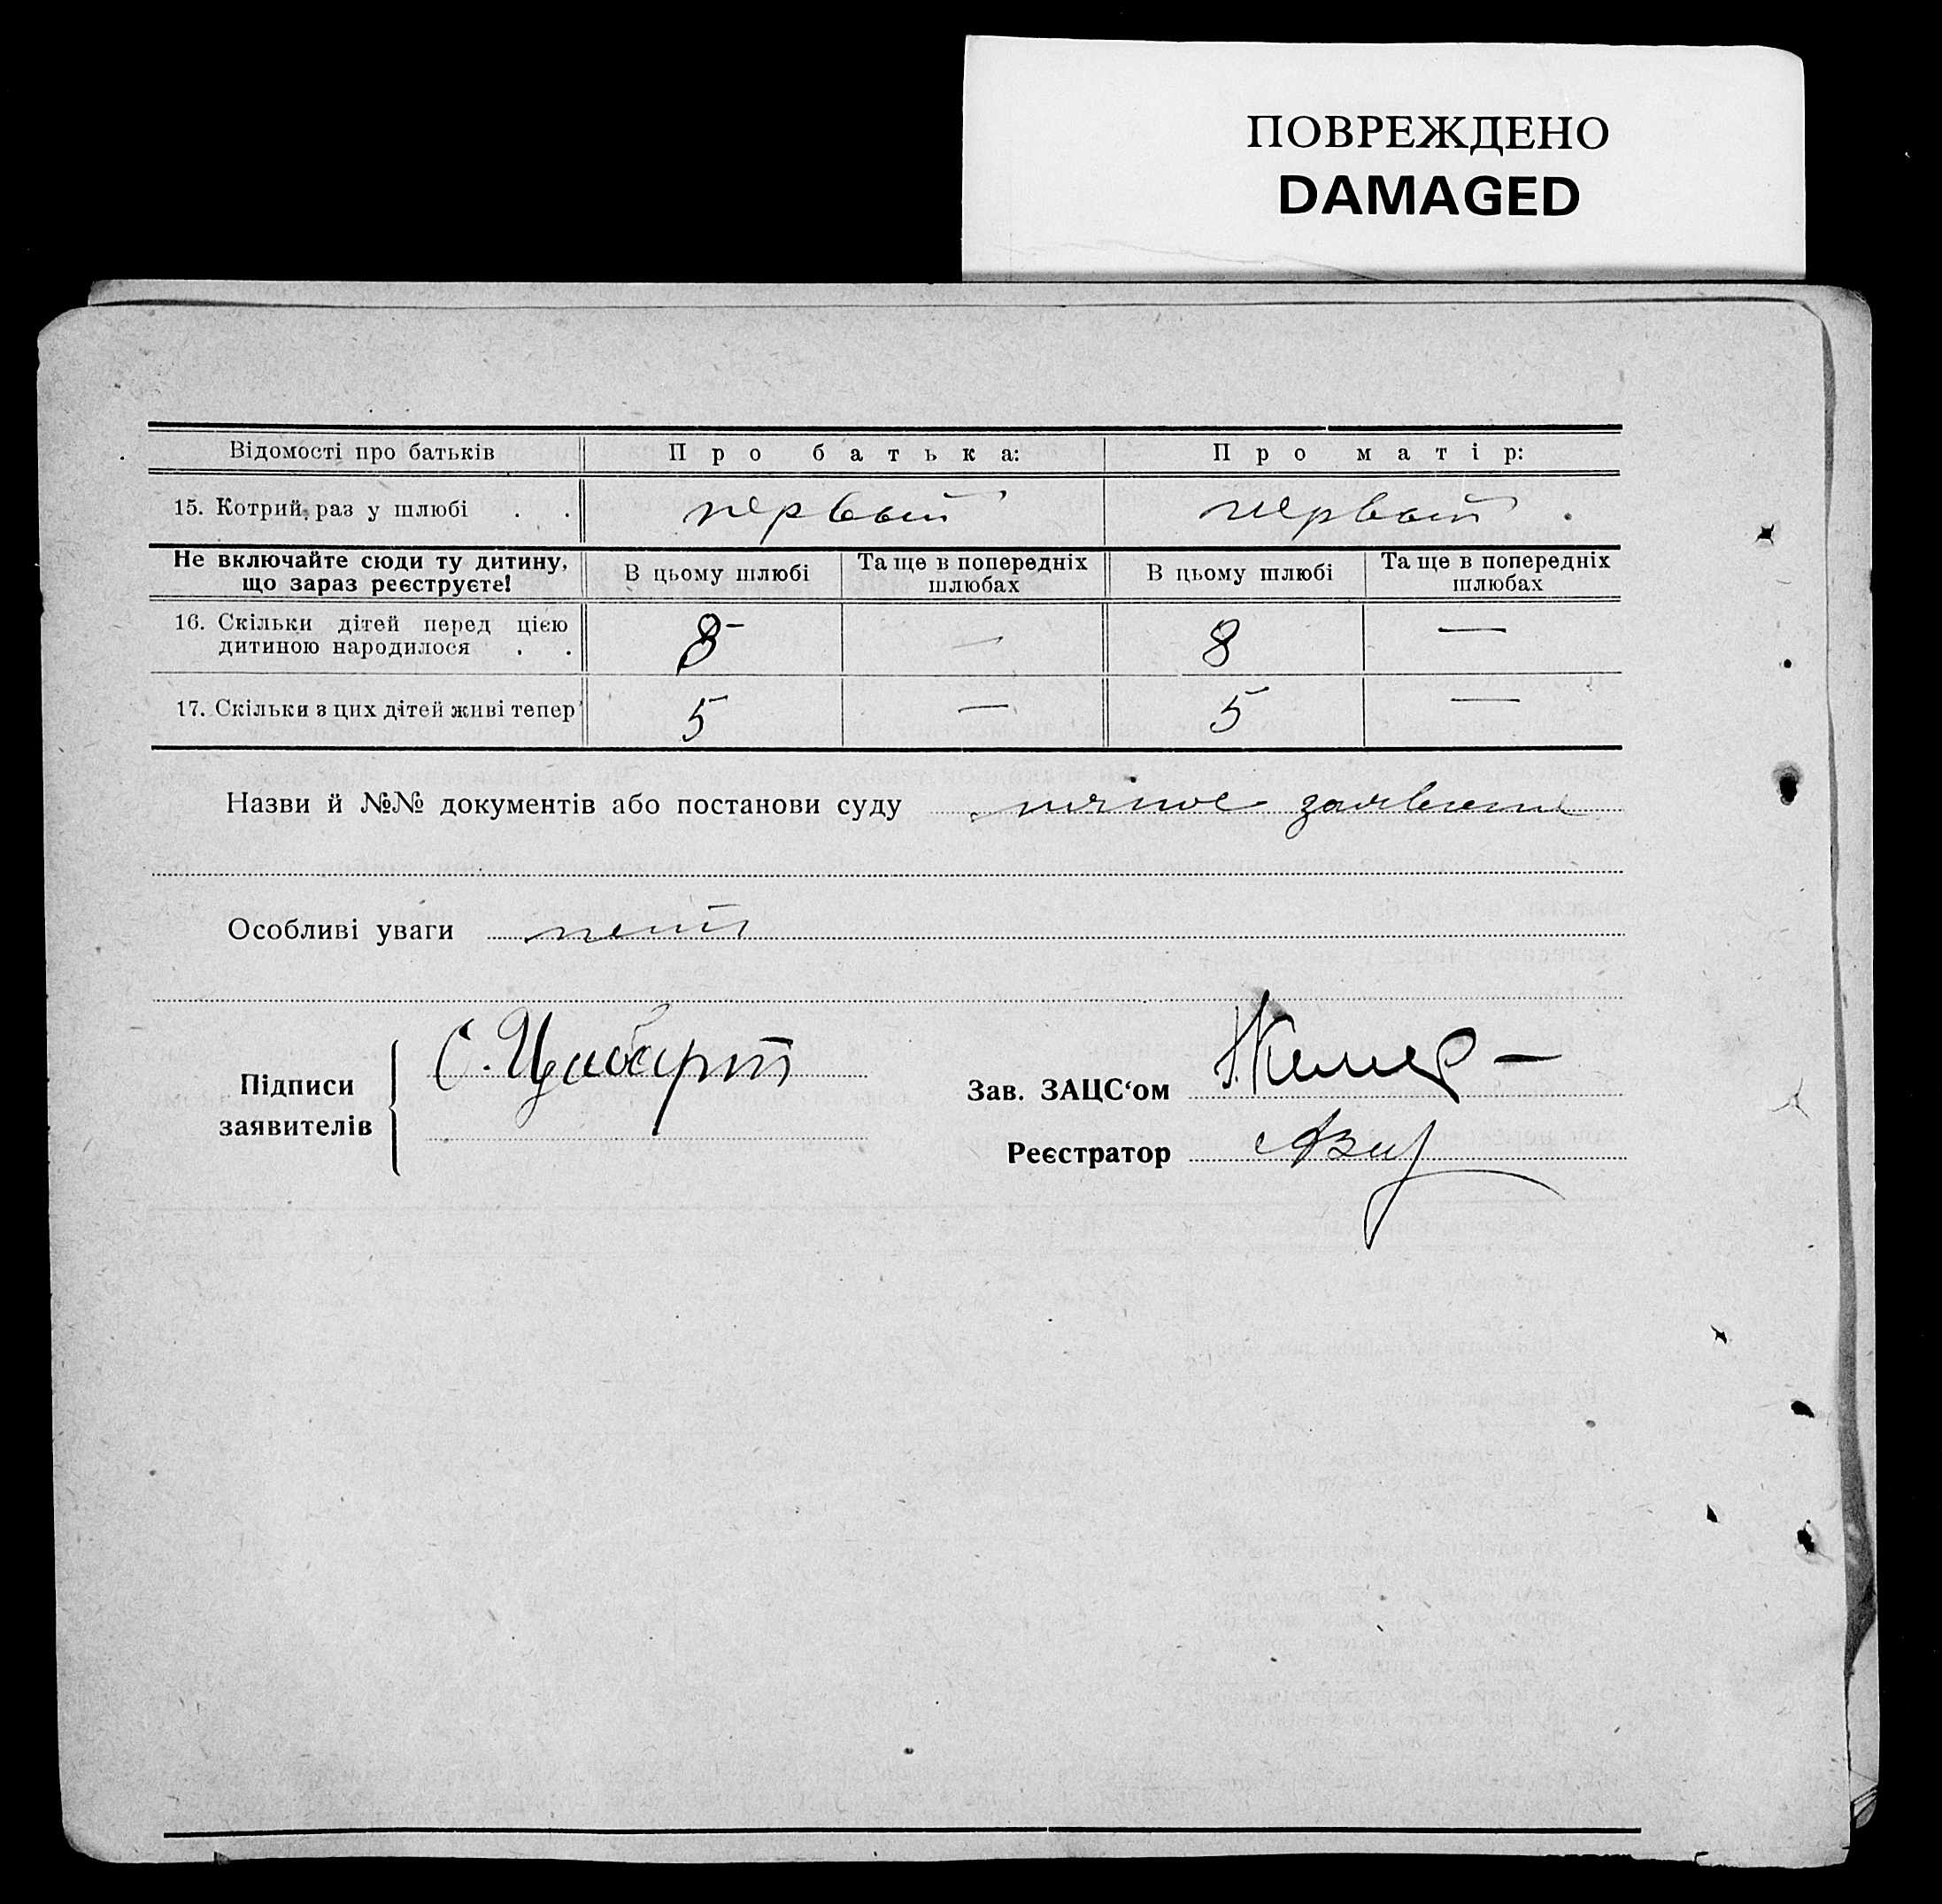 ПОВРЕЖДЕНО
DAMAGED
Відомості про батьків Про батька: Про матір:
15. Котрий раз у шлюбі . . первый первый
Не включайте сюди ту дитину, що зараз реєструєте! В цьому шлюбі Та ще в попередніх шлюбах В цьому шлюбі Та ще в попередніх шлюбах
16. Скільки дітей перед цією
дитиною народилося . . 8 — 8 —
17. Скільки з цих дітей живі тепер 5 — 5 —
Назви й №№ документів або постанови суду заявление
Особливі уваги нет
Підписи
заявителів
С. Цибарт
Зав. ЗАЦС‘ом
Реєстратор